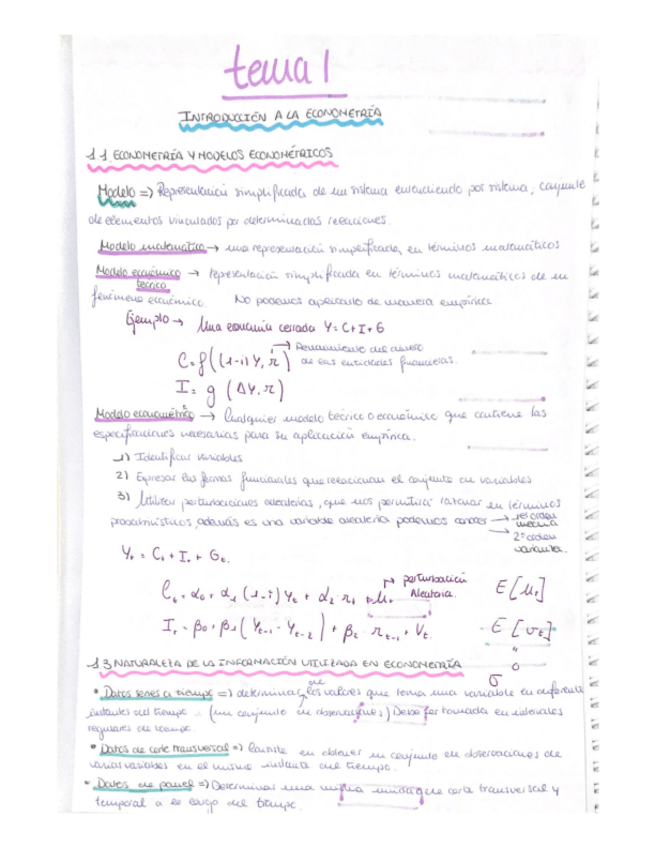 tema 1
INTRODUCCIÓN A LA ECONOMETRÍA
1.1 ECONOMETRÍA Y MODELOS ECONOMÉTRICOS
Modelo => Representación simplificada de un sistema entendiendo por sistema, conjunto
de elementos vinculados por determinadas relaciones.
Modelo matemático → una representación simplificada, en términos matemáticos
Modelo económico → representación simplificada en términos matemáticos de un
teórico
fenómeno económico. No podemos aplicarlo de manera empírica
Ejemplo → Una economía cerrada Y = C + I + G
C = f((1-i) Y, r) → Rendimiento del dinero
de las entidades financieras.
I = g (ΔY, r)
Modelo econométrico → Cualquier modelo teórico o económico que contiene las
especificaciones necesarias para su aplicación empírica.
1) Identificar variables
2) Expresar las formas funcionales que relacionan el conjunto de variables
3) Utilizar perturbaciones aleatorias, que nos permitirá razonar en términos
probabilísticos, además es una variable aleatoria podemos conocer → 1er orden
media
→ 2º orden
varianza.
Yt = Ct + It + Gt.
Ct = α0 + α1 (1-i) Yt + α2 · rt + μt → perturbación
Aleatoria. E[μt]
It = β0 + β1 (Yt-1 - Yt-2) + β2 · rt-1 + Vt. E[vt]
"
0
σ
1.3 NATURALEZA DE LA INFORMACIÓN UTILIZADA EN ECONOMETRÍA
• Datos series de tiempo => determinar los valores que toma una variable en diferentes
instantes del tiempo. (un conjunto de observaciones) Debe ser tomada en intervalos
regulares de tiempo.
• Datos de corte transversal => Consiste en obtener un conjunto de observaciones de
varias variables en el mismo instante del tiempo.
• Datos de panel => Determinar una misma unidad de corte transversal y
temporal a lo largo del tiempo.